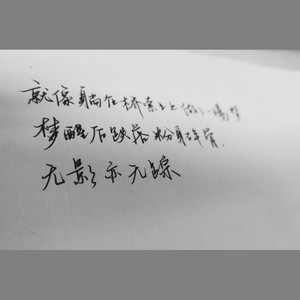 就像躺在桥索之上做了一场梦
梦醒后跌落粉身碎骨
无影亦无踪